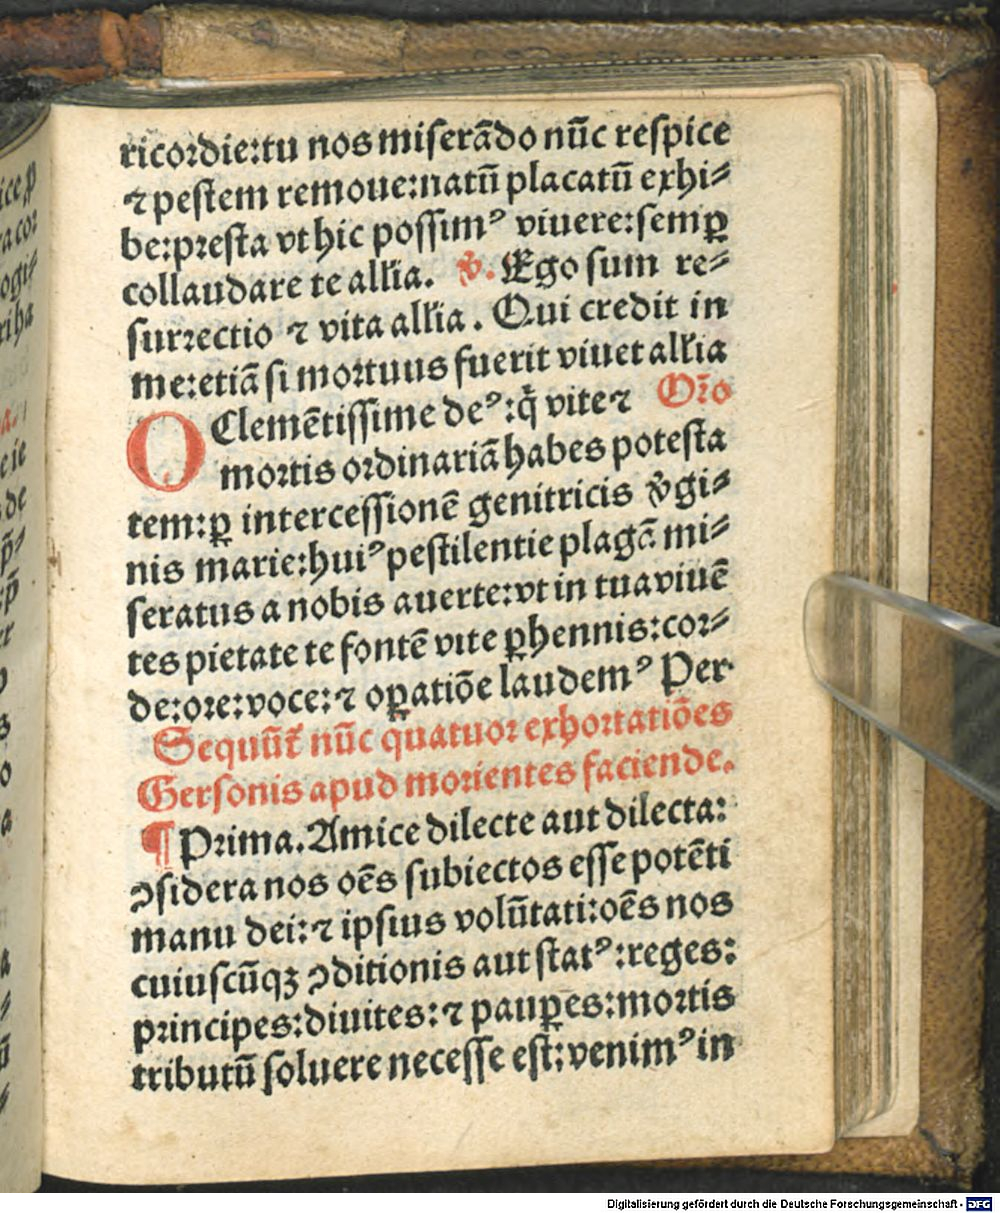 ricordie:tu nos miserādo nūc respice
⁊ pestem remoue:natū placatū exhi-
be:presta vt hic possimꝰ viuere:semꝑ
collaudare te all'ia. v̄. Ego sum re-
surrectio ⁊ vita all'ia. Qui credit in
me:etiā si mortuus fuerit viuet all'ia
O Clemētissime deꝰ:q̄ vite ⁊ Or̄o
mortis ordinariā habes potesta
tem:ꝑ intercessionē genitricis v̄gi-
nis marie:huiꝰ pestilentie plagā mi-
seratus a nobis auerte:vt in tua viuē
tes pietate te fontē vite ꝑhennis:cor-
de:ore:voce:⁊ oꝑatiōe laudemꝰ Per
Sequūt̄ nūc quatuor exhortatiōes
Gersonis apud morientes faciende.
¶ Prima. Amice dilecte aut dilecta:
ꝯsidera nos oēs subiectos esse potēti
manu dei:⁊ ipsius volūtati:oēs nos
cuiuscūqꝫ ꝯditionis aut statꝰ:reges:
principes:diuites:⁊ pauꝑes:mortis
tributū soluere necesse est:venimꝰ in
Digitalisierung gefördert durch die Deutsche Forschungsgemeinschaft - DFG